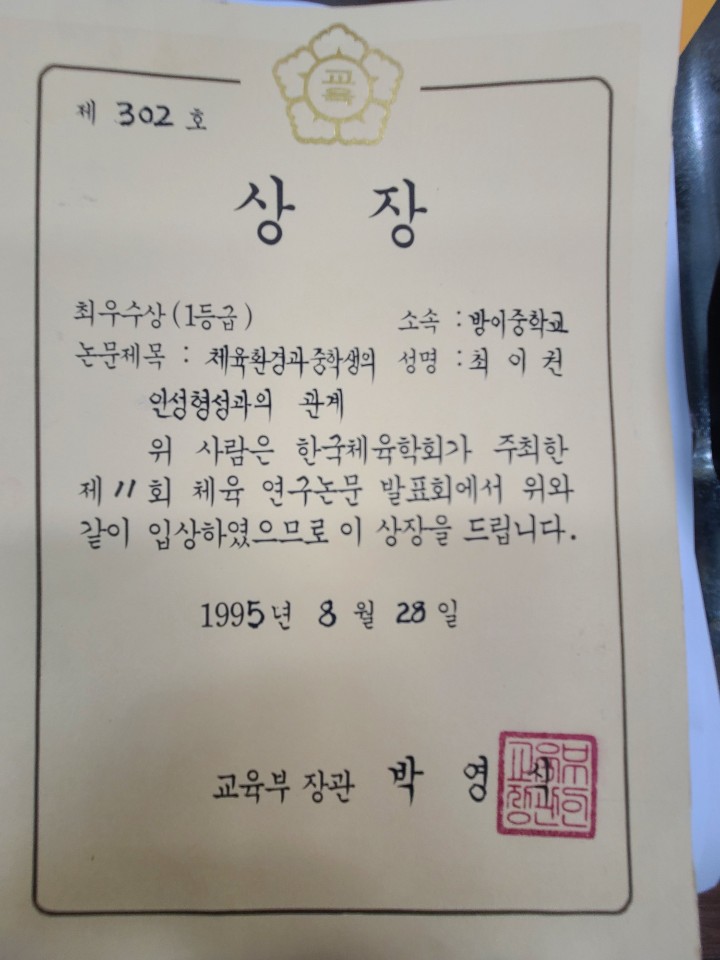 교육
제 302 호
상 장
최우수상 (1등급)
소속 : 방이중학교
논문제목 : 체육환경과 중학생의
성명 : 최 이 권
인성형성과의 관계
위 사람은 한국체육학회가 주최한
제 11 회 체육 연구논문 발표회에서 위와
같이 입상하였으므로 이 상장을 드립니다.
1995년 8 월 28 일
교육부 장관 박 영 식
교육부
장관인